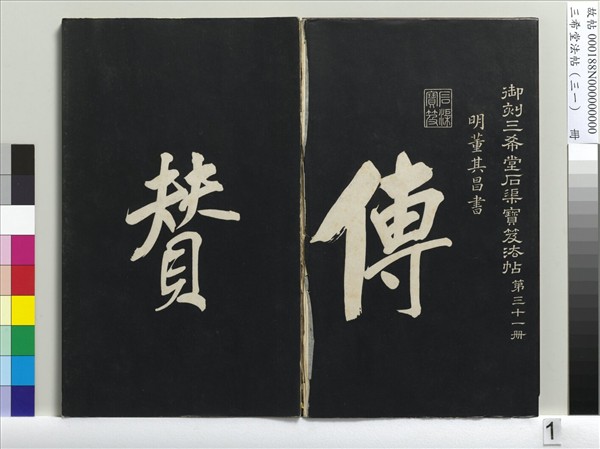 故帖 000188N000000000
三希堂法帖（三一） 冊
御刻三希堂石渠寶笈法帖 第三十一册
明董其昌書
石渠
寶笈
傳
賛
1